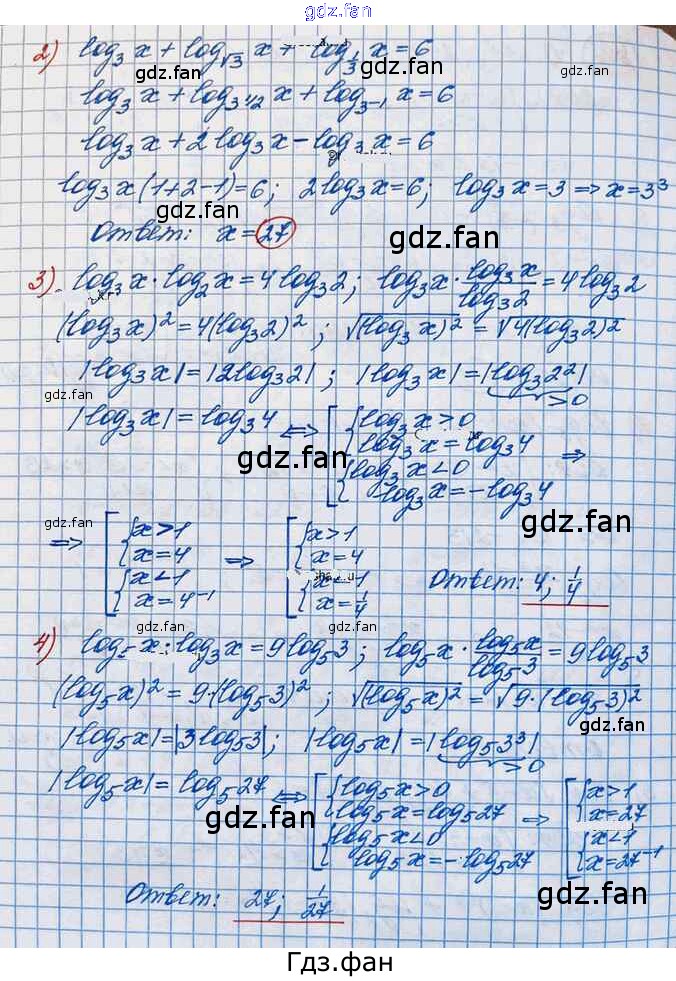 gdz.fan
2) log₃ x + log_√3 x + log_⅓ x = 6
gdz.fan
gdz.fan
log₃ x + log_3^1/2 x + log_3⁻¹ x = 6
gdz.fan
log₃ x + 2 log₃ x − log₃ x = 6
log₃ x (1+2−1) = 6; 2 log₃ x = 6; log₃ x = 3 => x = 3³
gdz.fan
gdz.fan
Ответ: x = 27
gdz.fan
3) log₃ x · log₂ x = 4 log₃ 2; log₃ x · log₃ x / log₃ 2 = 4 log₃ 2
(log₃ x)² = 4(log₃ 2)²; √(log₃ x)² = √4(log₃ 2)²
|log₃ x| = |2 log₃ 2|; |log₃ x| = |log₃ 2²|
>0
gdz.fan
|log₃ x| = log₃ 4 <=> [ { log₃ x > 0
log₃ x = log₃ 4
gdz.fan
{ log₃ x < 0 =>
log₃ x = −log₃ 4
=> [ { x > 1
x = 4
{ x < 1
x = 4⁻¹
=> [ { x > 1
x = 4
{ x < 1
x = ¼
gdz.fan
gdz.fan
Ответ: 4; ¼
gdz.fan
4) log₅ x · log₃ x = 9 log₅ 3; log₅ x · log₅ x / log₅ 3 = 9 log₅ 3
gdz.fan
(log₅ x)² = 9·(log₅ 3)²; √(log₅ x)² = √9·(log₅ 3)²
|log₅ x| = |3 log₅ 3|; |log₅ x| = |log₅ 3³|
>0
|log₅ x| = log₅ 27 <=> [ { log₅ x > 0
log₅ x = log₅ 27
{ log₅ x < 0
log₅ x = −log₅ 27
=> [ { x > 1
x = 27
{ x < 1
x = 27⁻¹
gdz.fan
gdz.fan
gdz.fan
Ответ: 27; 1/27
Гдз.фан